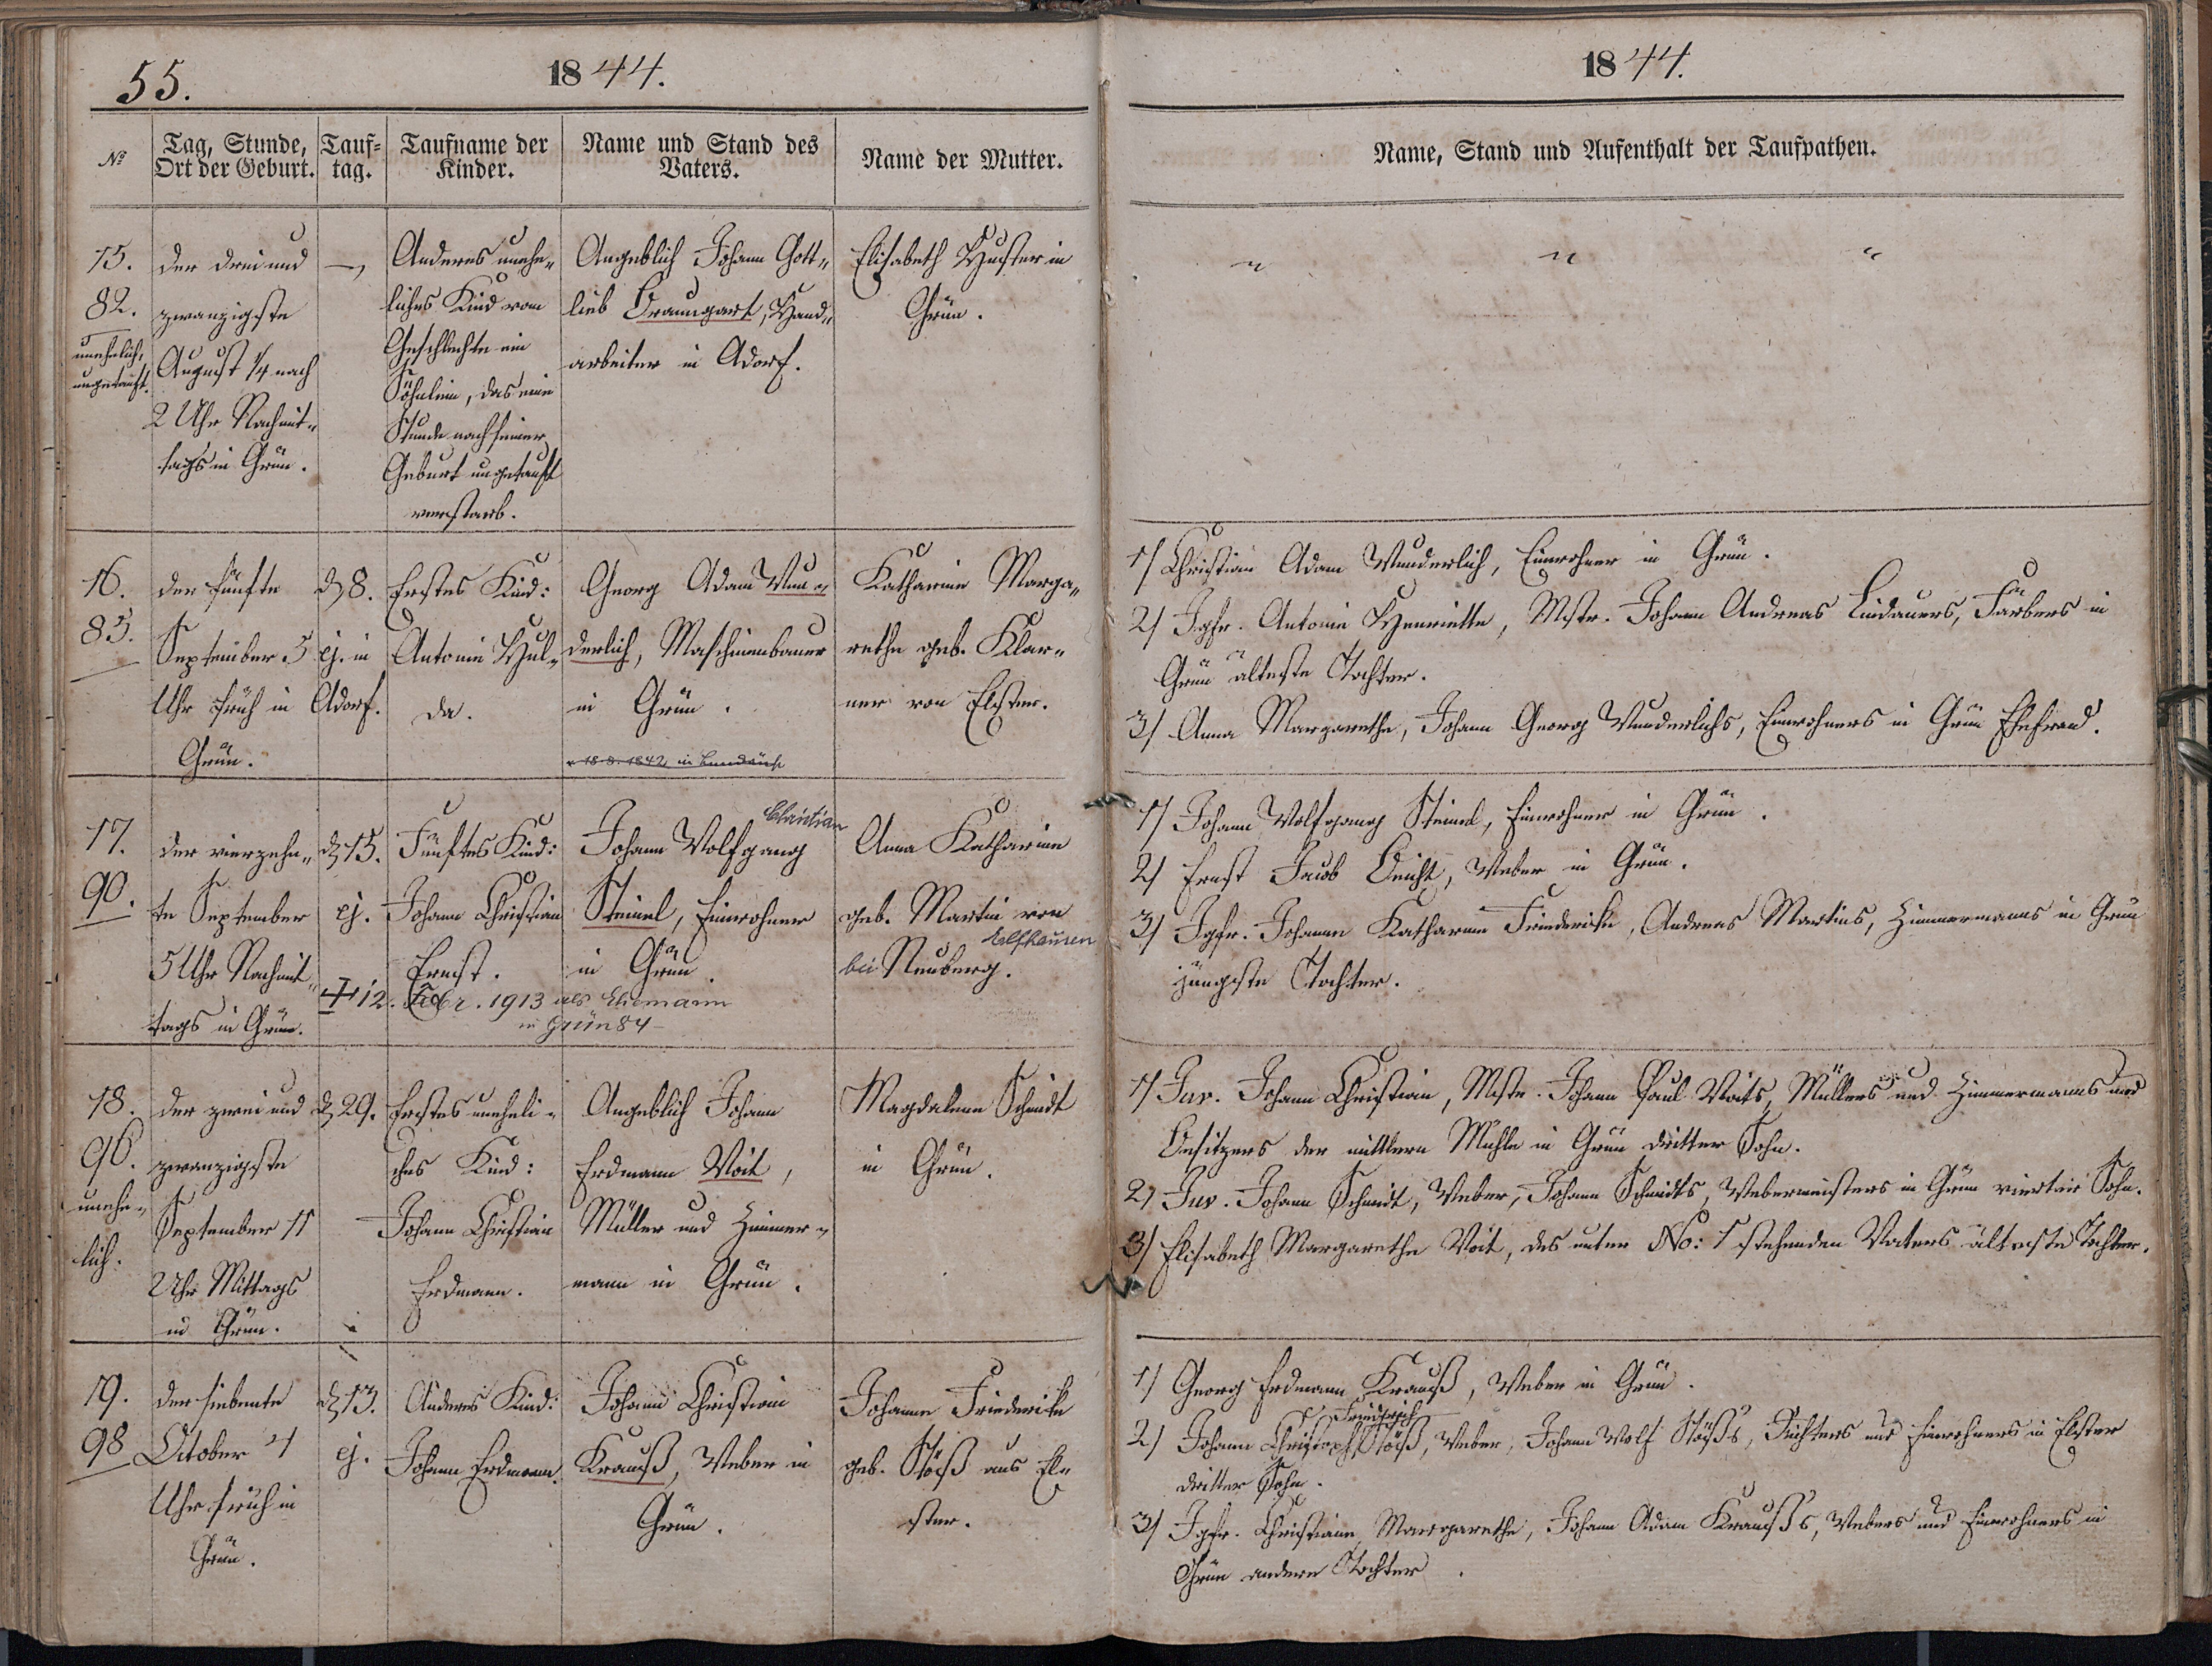 55.
1844.
№
Tag, Stunde,
Ort der Geburt.
Tauf=
tag.
Taufname der
Kinder.
Name und Stand des
Vaters.
Name der Mutter.
15.
82.
unehelich,
ungetauft.
der drei und
zwanzigste
August 1/4 nach
2 Uhr Nachmit„
tags in Grün.
—
Anderes unehe„
liches Kind vom
Geschlechte ein
Söhnlein, das eine
Stunde nach seiner
Geburt ungetauft
verstarb.
Angeblich Johann Gott„
lieb Braungart, Hand„
arbeiter in Adorf.
Elisabeth Huster in
Grün.
16.
83.
der fünfte
September 5
Uhr früh in
Grün.
d 8.
ej. in
Adorf.
Erstes Kind:
Antonie Hul„
da.
Georg Adam Wun„
derlich, Maschinenbauer
in Grün.
18.8.1842 in
Katharine Marga„
rethe geb. Klar„
ner von Elster.
17.
90.
der vierzehn„
te September
5 Uhr Nachmit„
tags in Grün.
d 15.
ej.
Fünftes Kind:
Johann Christian
Ernst.
Christian
Johann Wolfgang
Steinel, Einwohner
in Grün.
Anna Katharine
geb. Martin von
Elfhausen
bei Neuberg.
12. Febr. 1913 als Ehemann
in Grün 84
18.
96.
unehe„
lich.
der zwei und
zwanzigste
September 11
Uhr Mittags
in Grün.
d 29.
Erstes uneheli„
ches Kind:
Johann Christian
Erdmann.
Angeblich Johann
Erdmann Voit,
Müller und Zimmer„
mann in Grün.
Magdalena Schmidt
in Grün.
19.
98
der siebente
October 4
Uhr früh in
Grün.
d 13.
ej.
Anderes Kind:
Johann Erdmann.
Johann Christian
Krauß, Weber in
Grün.
Johanne Friederike
geb. Stöß aus El„
ster.
1844.
Name, Stand und Aufenthalt der Taufpathen.
„ „ „
1/ Christian Adam Wunderlich, Einwohner in Grün.
2/ Jgfr. Antonie Henriette, Mstr. Johann Andreas Lindauers, Färbers in
Grün älteste Tochter.
3/ Anna Margarethe, Johann Georg Wunderlichs, Einwohners in Grün Ehefrau.
1/ Johann Wolfgang Steinel, Einwohner in Grün.
2/ Ernst Jacob, Weber in Grün.
3/ Jgfr. Johanne Katharine Friederike, Andreas Martins, Zimmermanns in Grün
jüngste Tochter.
1/ Juv. Johann Christian, Mstr. Johann Paul Voits, Müllers und Zimmermanns und
Besitzers der mittlern Mühle in Grün dritter Sohn.
2/ Juv. Johann Schmidt, Weber, Johann Schmidts, Webermeisters in Grün vierter Sohn.
3/ Elisabeth Margarethe Voit, des unter No: 1 stehenden Vaters älteste Tochter.
1/ Georg Erdmann Krauß, Weber in Grün.
Friedrich
2/ Johann Christoph Stöß, Weber, Johann Wolf Stöß's, und Einwohners in Elster
dritter Sohn.
3/ Jgfr. Christiane Margarethe, Johann Adam Krauß's, Webers und Einwohners in
Grün andere Tochter.